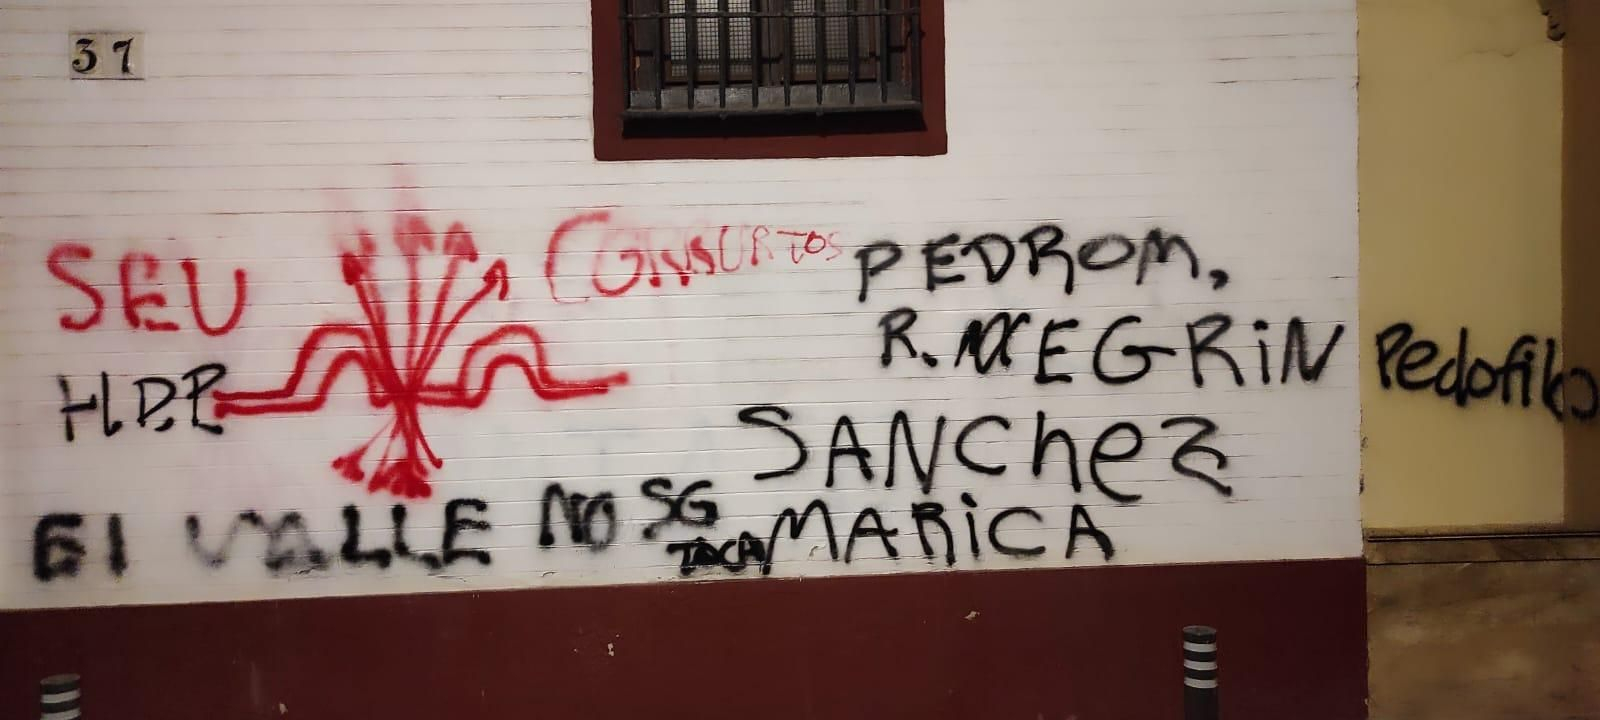 37
SEU
CONSURTOS
HDP
El VALLE NO SG TOCA
PEDROM,
R. NEGRiN
SANChez
MARiCA
Pedofilo